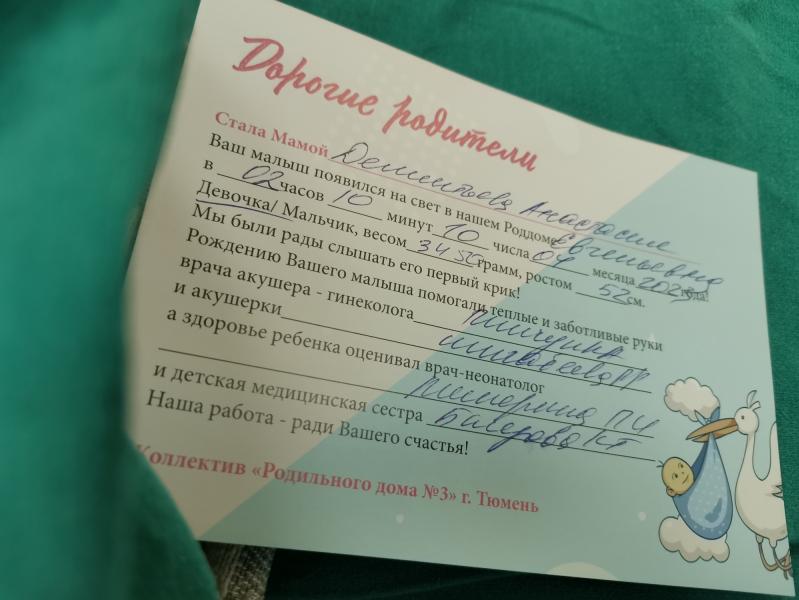 Дорогие родители
Стала Мамой Дементьева Анастасия
Евгеньевна
Ваш малыш появился на свет в нашем Роддоме
в 02 часов 10 минут 10 числа 09 месяца 2023 года!
Девочка/ Мальчик, весом 3450 грамм, ростом 52 см.
Мы были рады слышать его первый крик!
Рождению Вашего малыша помогали теплые и заботливые руки
врача акушера - гинеколога
и акушерки
а здоровье ребенка оценивал врач-неонатолог
и детская медицинская сестра
Наша работа - ради Вашего счастья!
Коллектив «Родильного дома №3» г. Тюмень